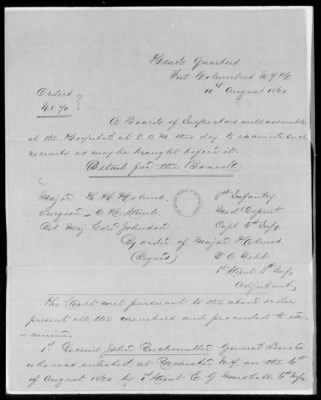 Head Quarters
Fort Columbus N.Y.H.
10th August 1860
Orders
No 70
A Board of Inspectors will assemble
at the Hospital at 8 A.M. this day to examine such
recruits as may be brought before it.
Detail for the Board
Major 5th Infantry
Surgeon Med Depmt
Bvt Maj Edwd Johnson Capt 6th Infy
By order of Major
(Signed)
1st Lieut 5th Infy
Adjutant,
The Court met pursuant to the above order
present all the members and proceeded to ex-
amine
1st Recruit John General Service
who was enlisted at Rochester N.Y. on the
of August 1860 by Lieut E. G. Marshall 6th Infy